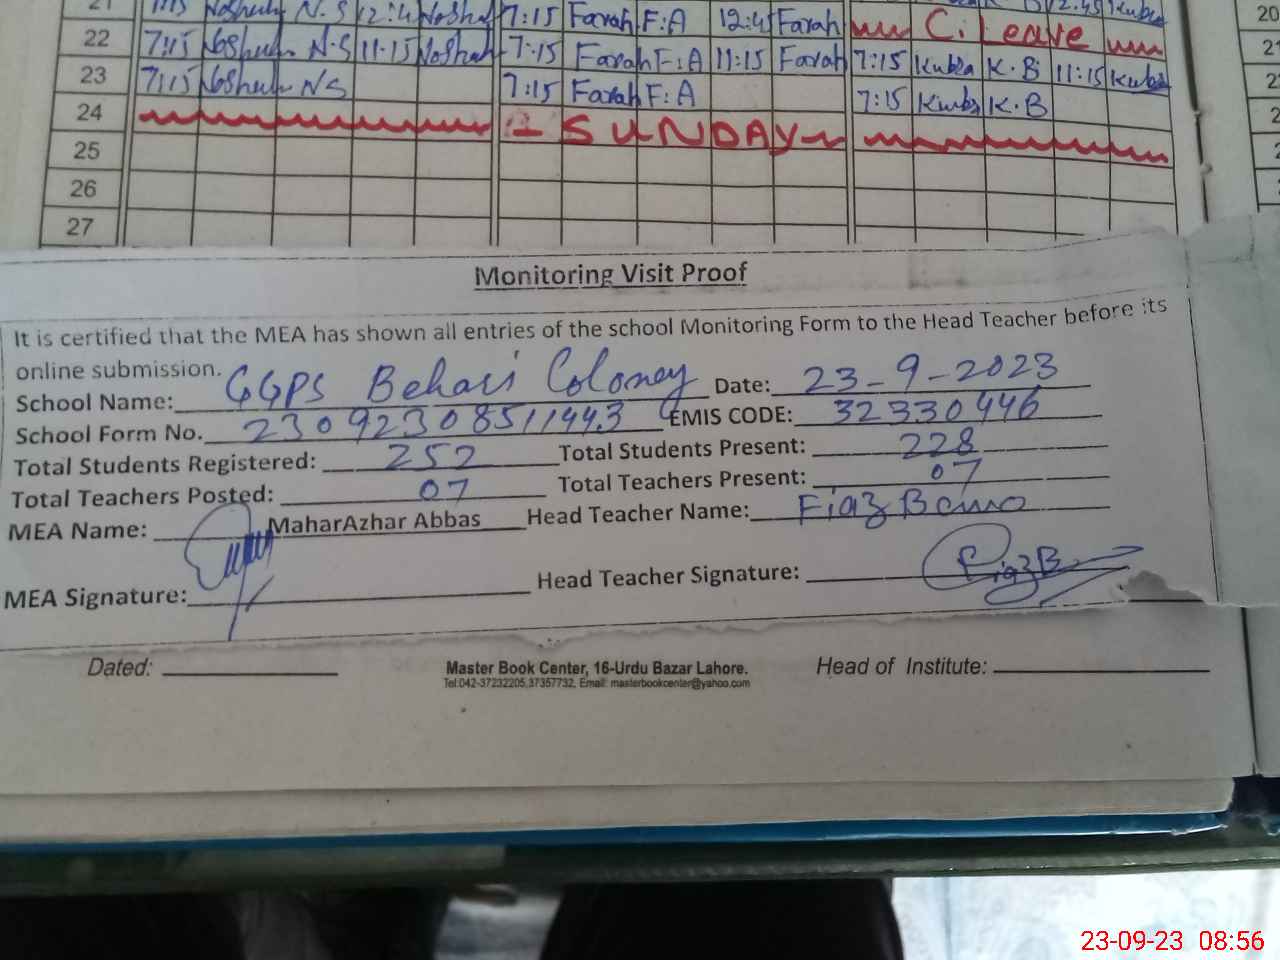 21 7:15 N.S 12:45 7:15 Farah F:A 12:45 Farah C. Leave
22 7:15 Noshab N.S 11:15 Noshab 7:15 Farah F:A 11:15 Farah 7:15 Kubra K.B 11:15 Kubra
23 7:15 Noshab NS 7:15 Farah F:A 7:15 Kubra K.B
24 SUNDAY
25
26
27
20
Monitoring Visit Proof
It is certified that the MEA has shown all entries of the school Monitoring Form to the Head Teacher before its
online submission.
School Name: GGPS Behari Coloney Date: 23-9-2023
School Form No. 23092308511443 EMIS CODE: 32330446
Total Students Registered: 252 Total Students Present: 228
Total Teachers Posted: 07 Total Teachers Present: 07
MEA Name: MaharAzhar Abbas Head Teacher Name: Fiaz Bano
MEA Signature: Head Teacher Signature: Fiaz B
Dated: Master Book Center, 16-Urdu Bazar Lahore. Head of Institute:
Tel:042-37232205,37357732, Email: masterbookcenter@yahoo.com
23-09-23 08:56